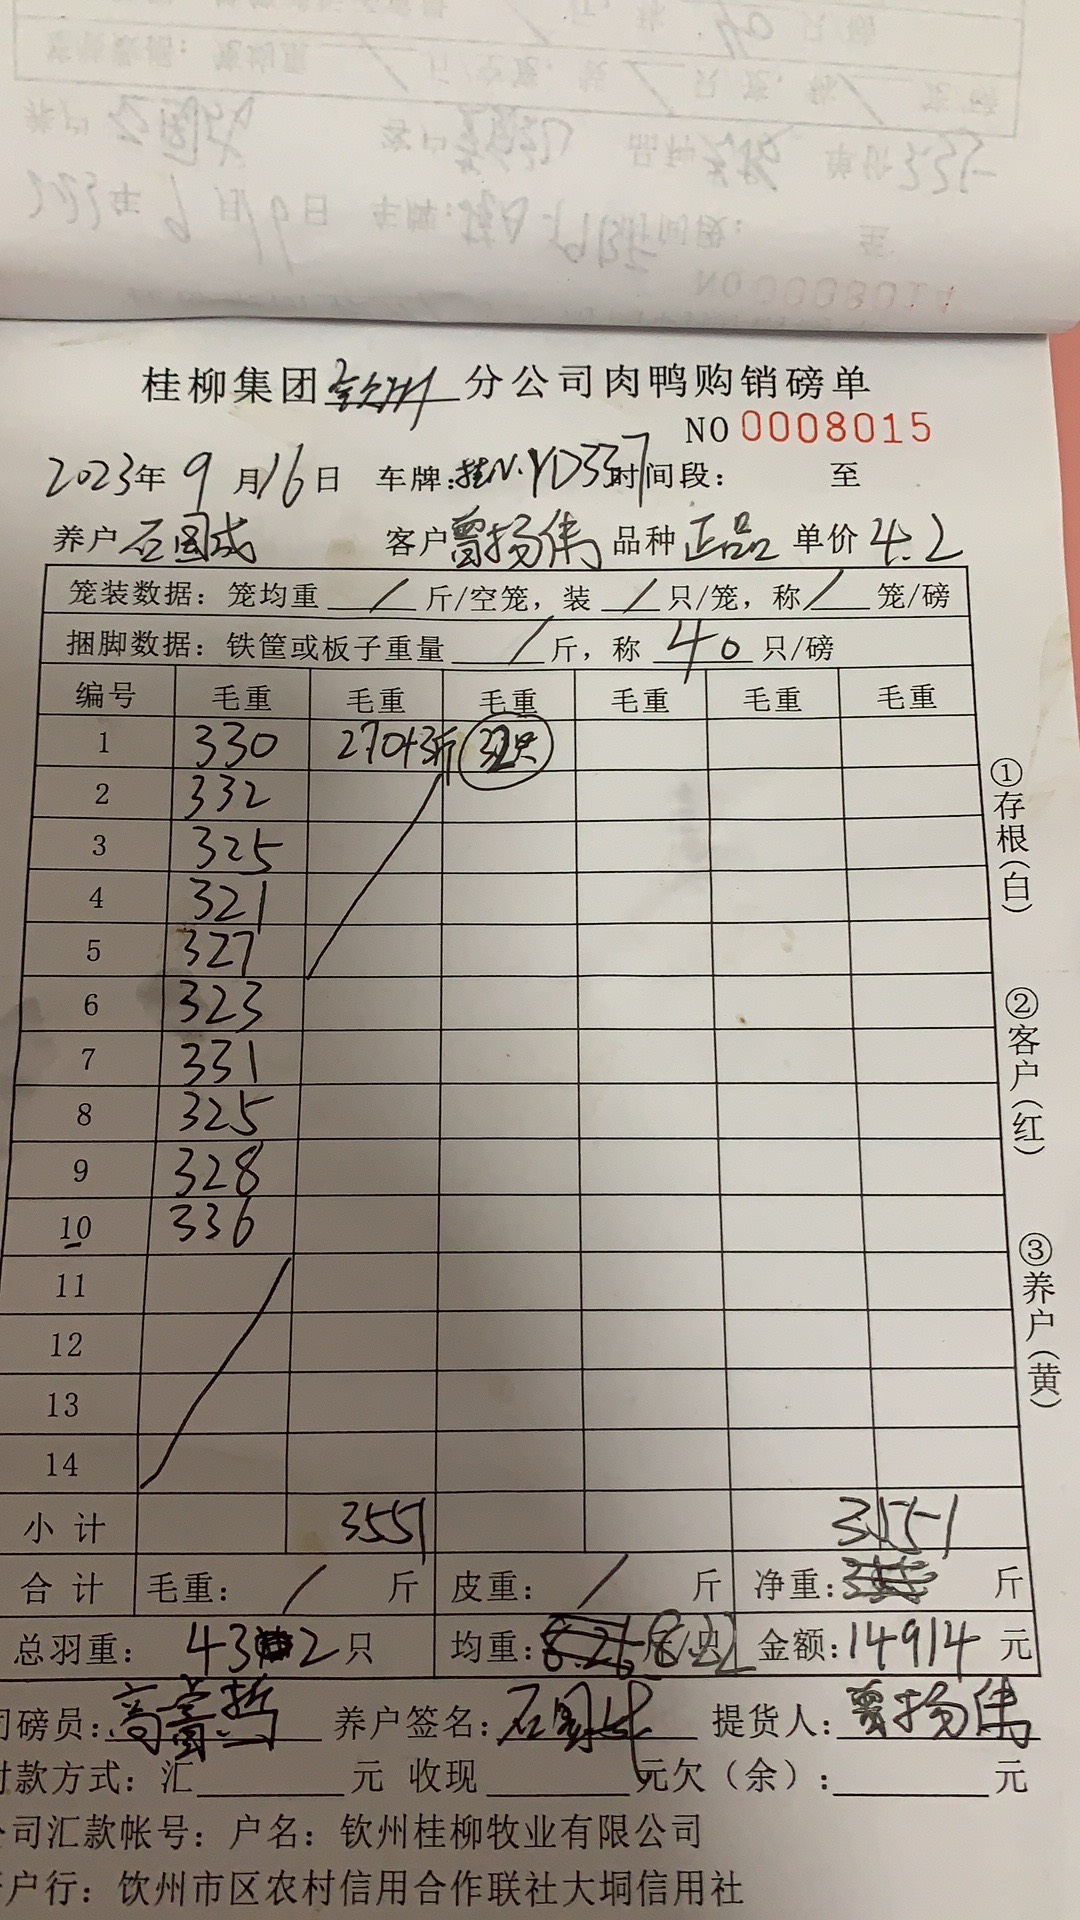 桂柳集团钦州分公司肉鸭购销磅单
NO 0008015
2023年9月16日 车牌:桂N·YD337 时间段: 至
养户 石国成 客户 曾扬伟 品种 正品 单价 4.2
笼装数据: 笼均重 / 斤/空笼, 装 / 只/笼, 称 / 笼/磅
捆脚数据: 铁筐或板子重量 / 斤, 称 40 只/磅
编号 毛重 毛重 毛重 毛重 毛重 毛重
1 330 270+3斤 32只
2 332
3 325
4 321
5 327
6 323
7 331
8 325
9 328
10 336
11
12
13
14
小计 3551 3551
合计 毛重: / 斤 皮重: / 斤 净重: 斤
总羽重: 432只 均重: 8.22 金额: 14914元
司磅员: 养户签名: 石国成 提货人: 曾扬伟
付款方式: 汇 元 收现 元欠(余): 元
公司汇款帐号: 户名: 钦州桂柳牧业有限公司
开户行: 饮州市区农村信用合作联社大垌信用社
①存根(白)
②客户(红)
③养户(黄)